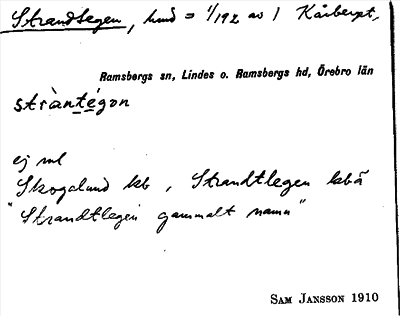 Strandtegen, hmd = 1/192 av 1 Kårberget,
Ramsbergs sn, Lindes o. Ramsbergs hd, Örebro län
stràntégon
ej ml
Skogalund kb, Strandtlegen kbå
"Strandtlegen gammalt namn"
SAM JANSSON 1910